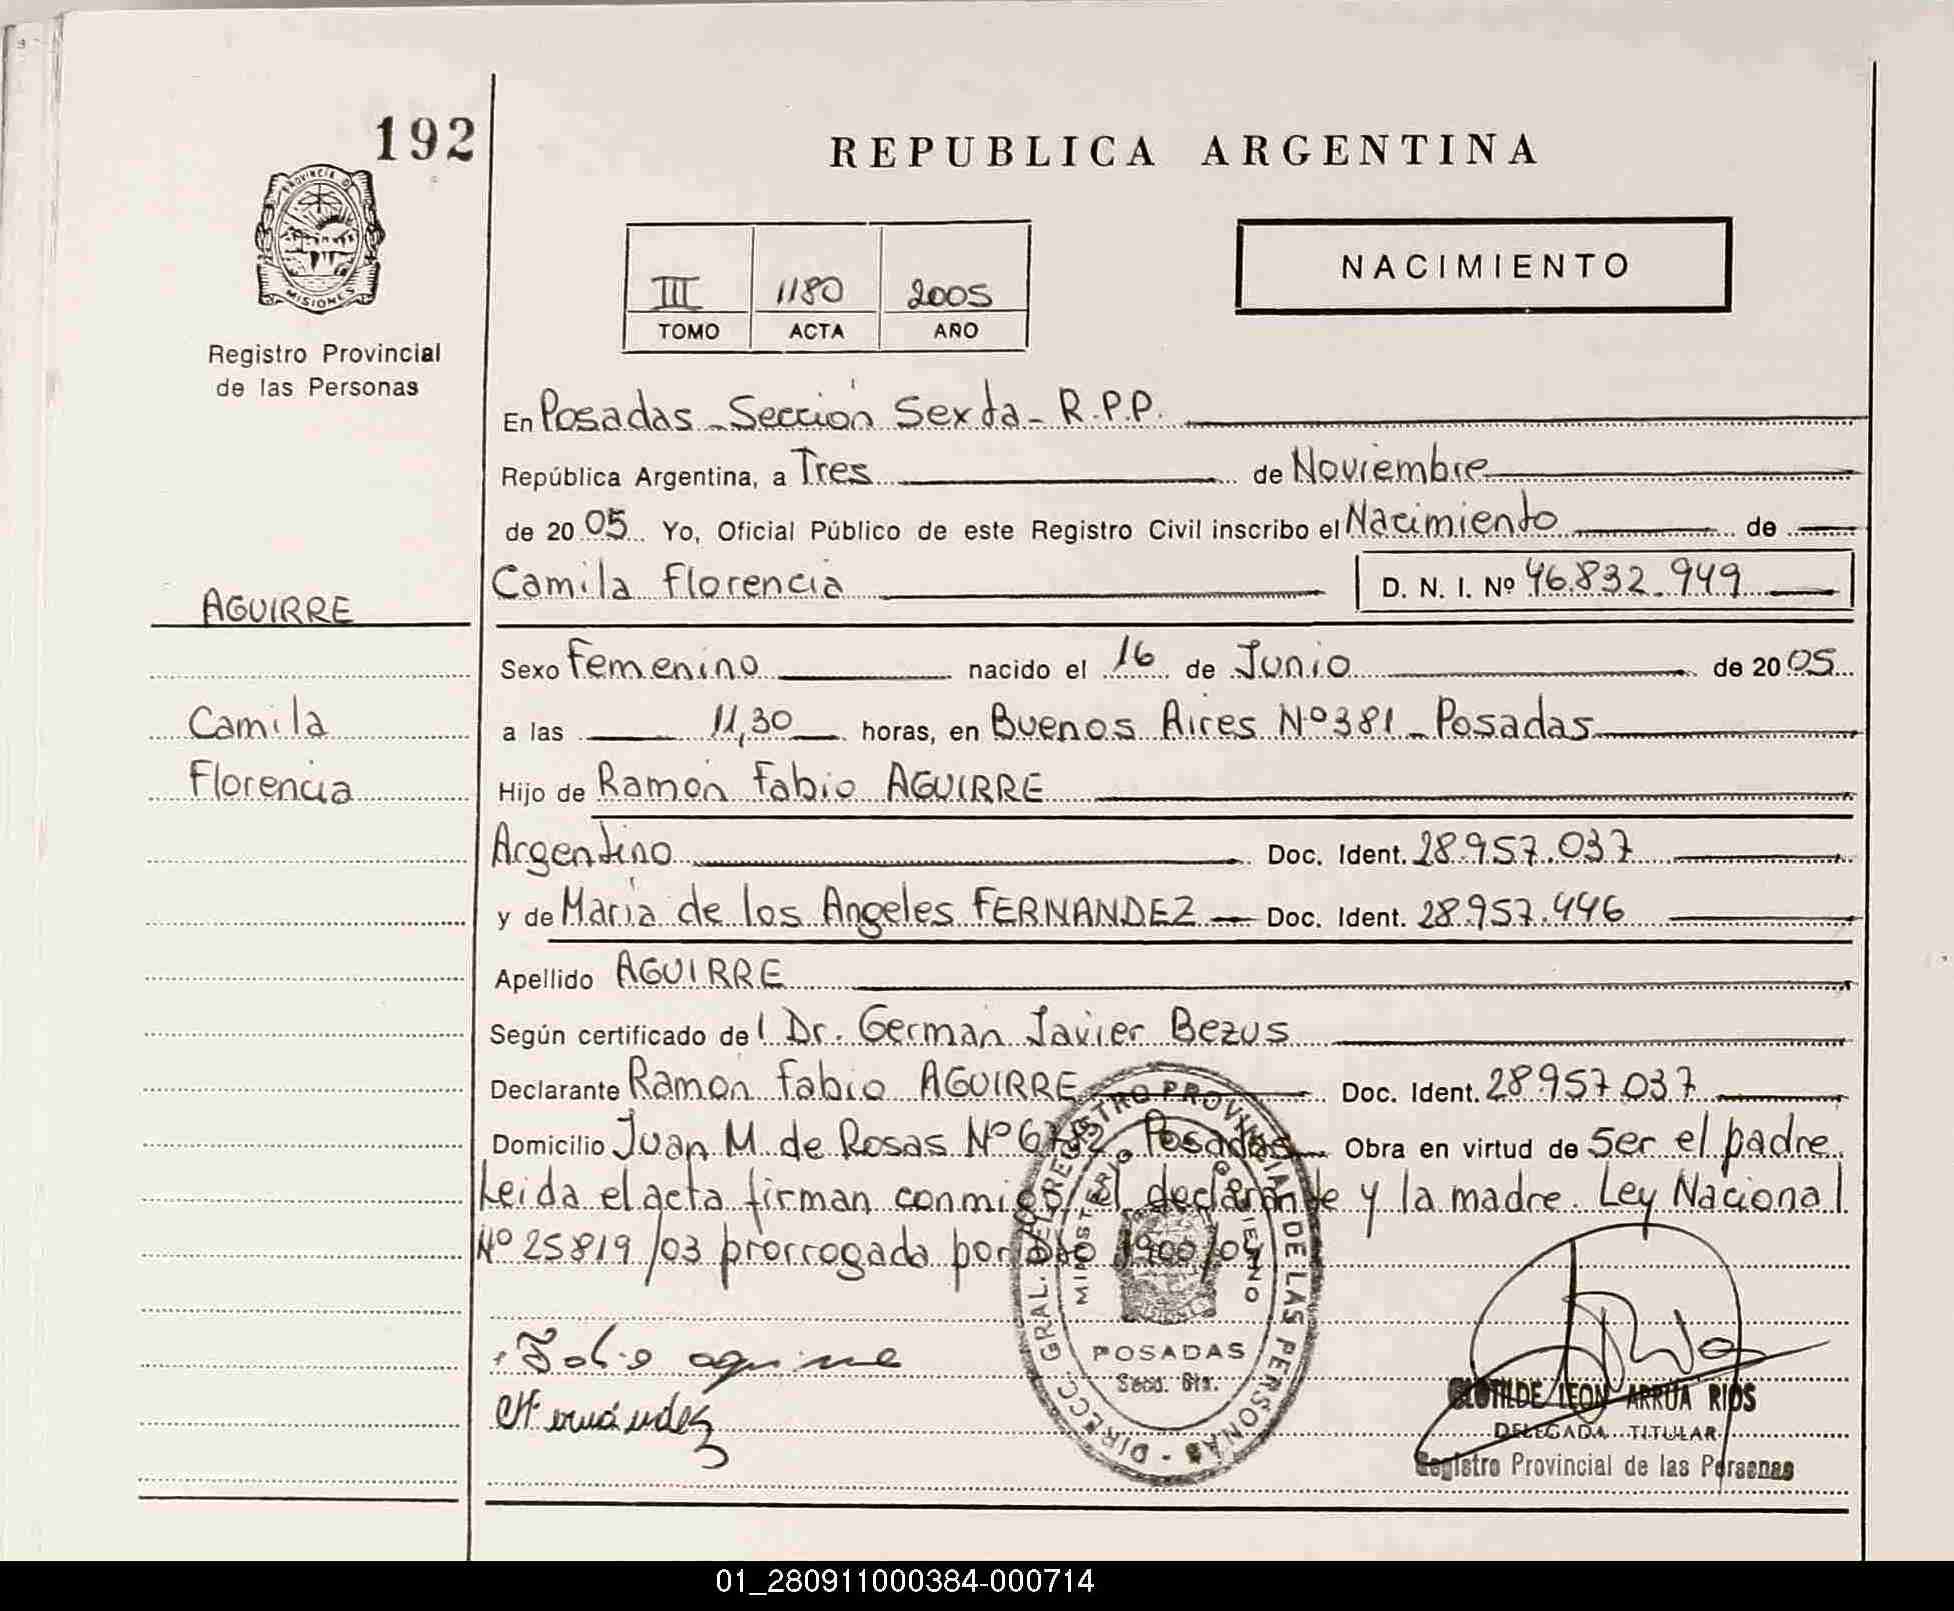 192
REPUBLICA ARGENTINA
PROVINCIA D
MISIONES
Registro Provincial
de las Personas
NACIMIENTO
III 1180 2005
TOMO ACTA AÑO
En Posadas - Sección Sexta - R.P.P.
República Argentina, a Tres de Noviembre
de 20 05 Yo, Oficial Público de este Registro Civil inscribo el Nacimiento de
Camila Florencia D. N. I. Nº 46.832.949
AGUIRRE
Camila
Florencia
Sexo Femenino nacido el 16 de Junio de 20 05
a las 11,30 horas, en Buenos Aires Nº 381 - Posadas
Hijo de Ramón Fabio AGUIRRE
Argentino Doc. Ident. 28.957.037
y de María de los Angeles FERNANDEZ Doc. Ident. 28.957.446
Apellido AGUIRRE
Según certificado del Dr. Germán Javier Bezus
Declarante Ramón Fabio AGUIRRE Doc. Ident. 28.957.037
Domicilio Juan M. de Rosas Nº Posadas Obra en virtud de Ser el padre.
Leida el acta firman conmigo el declarante y la madre. Ley Nacional
Nº 25819/03 prorrogada por Dto 1900/04
Fabio aguirre
Fernández
DIRECC. GRAL. DEL REGISTRO PROVINCIAL DE LAS PERSONAS
MINISTERIO GOBIERNO
POSADAS
Secc. 6ta.
CLOTILDE LEON ARRUA RIOS
DELEGADA TITULAR
Registro Provincial de las Personas
01_280911000384-000714